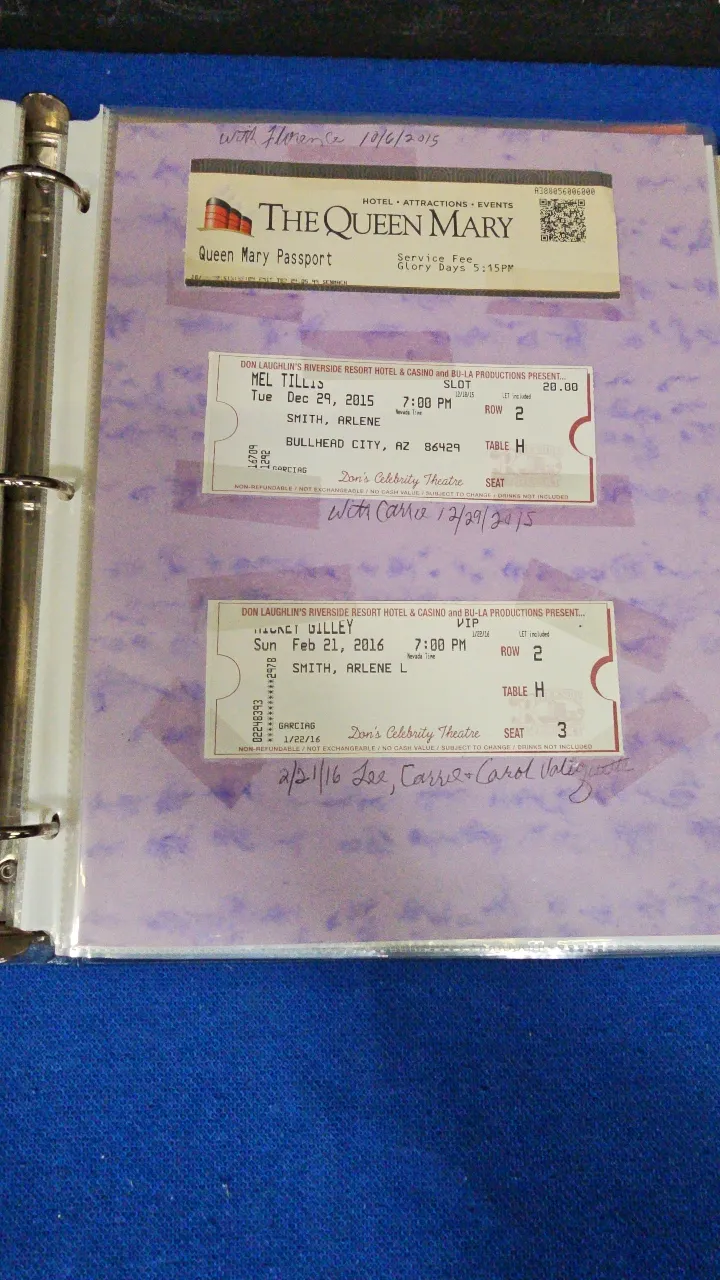 with Florence 10/6/2015
A388056006000
HOTEL • ATTRACTIONS • EVENTS
THE QUEEN MARY
Queen Mary Passport
Service Fee
Glory Days 5:15PM
DON LAUGHLIN'S RIVERSIDE RESORT HOTEL & CASINO and BU-LA PRODUCTIONS PRESENT...
MEL TILLIS SLOT 20.00
Tue Dec 29, 2015 7:00 PM 12/18/15 LET included
Nevada Time
ROW 2
SMITH, ARLENE
BULLHEAD CITY, AZ 86429
TABLE H
16709
1292
GARCIAG
Don's Celebrity Theatre
SEAT
NON-REFUNDABLE / NOT EXCHANGEABLE / NO CASH VALUE / SUBJECT TO CHANGE / DRINKS NOT INCLUDED
with Carrie 12/29/2015
DON LAUGHLIN'S RIVERSIDE RESORT HOTEL & CASINO and BU-LA PRODUCTIONS PRESENT...
MICKEY GILLEY VIP
Sun Feb 21, 2016 7:00 PM 1/22/16 LET included
Nevada Time
ROW 2
SMITH, ARLENE L
TABLE H
02248393
********2978
GARCIAG
1/22/16
Don's Celebrity Theatre
SEAT 3
NON-REFUNDABLE / NOT EXCHANGEABLE / NO CASH VALUE / SUBJECT TO CHANGE / DRINKS NOT INCLUDED
2/21/16 Lee, Carrie + Carol